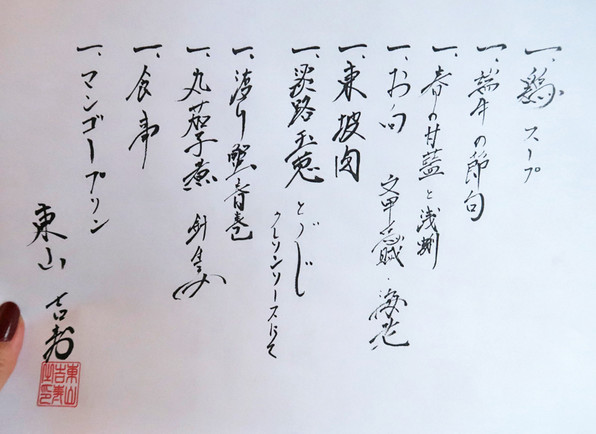 一、鶏 スープ
一、端午の節句
一、春の甘藍と浅蜊
一、お向 文甲烏賊・海老
一、東坡肉
一、淡路玉葱
クレソンソースにて
一、渡り蟹春巻
一、丸茄子煮 針生姜
一、食事
一、マンゴープリン
東山 吉寿